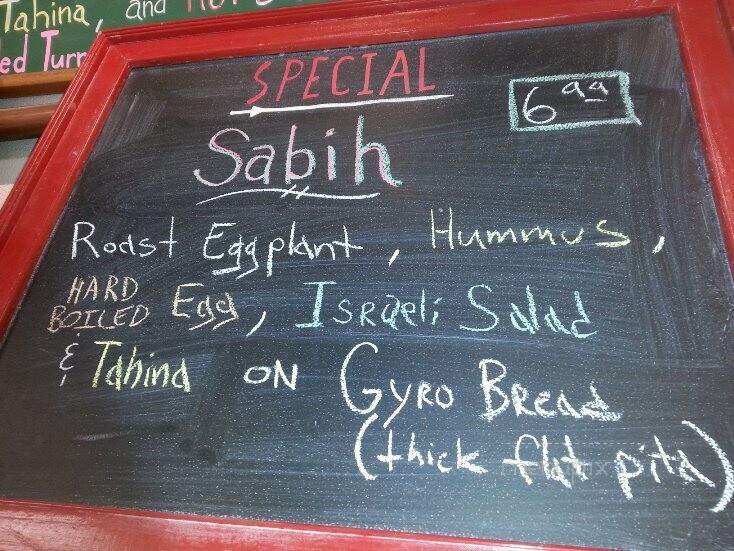 Tahina, and
ed Turn
SPECIAL
6 99
Sabih
Roast Eggplant, Hummus,
HARD
BOILED Egg, Israeli Salad
& Tahina ON Gyro Bread
(thick flat pita)